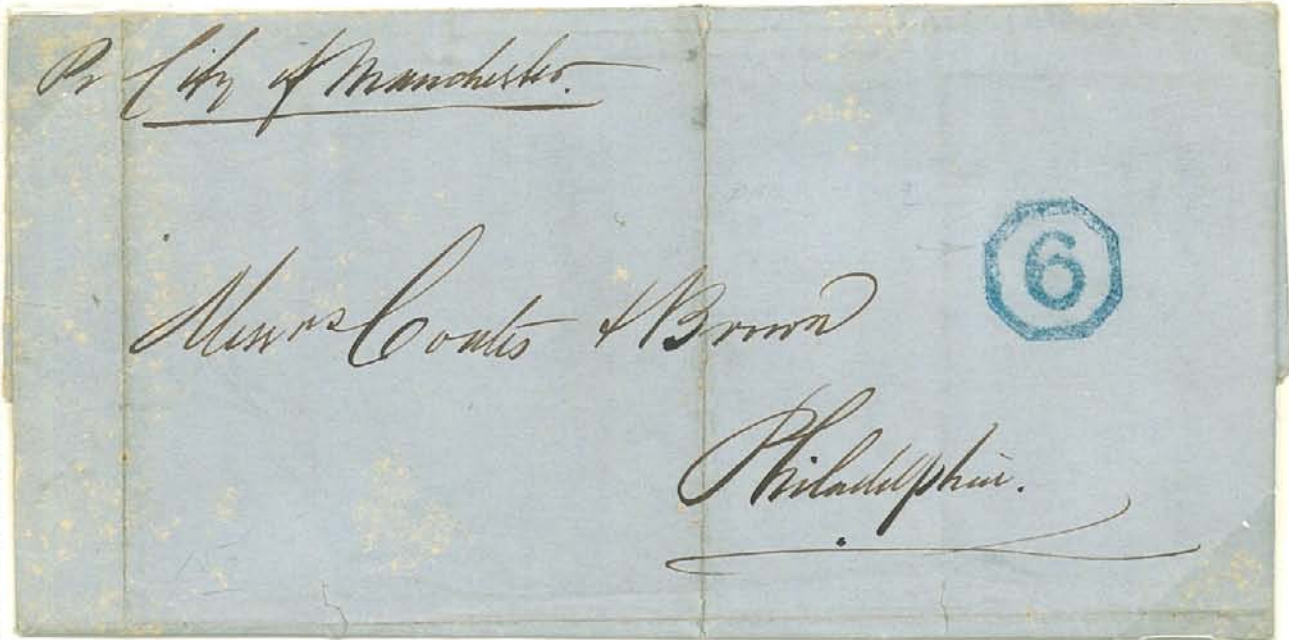 Pr City of Manchester.
6
Messrs Coates & Brown
Philadelphia.